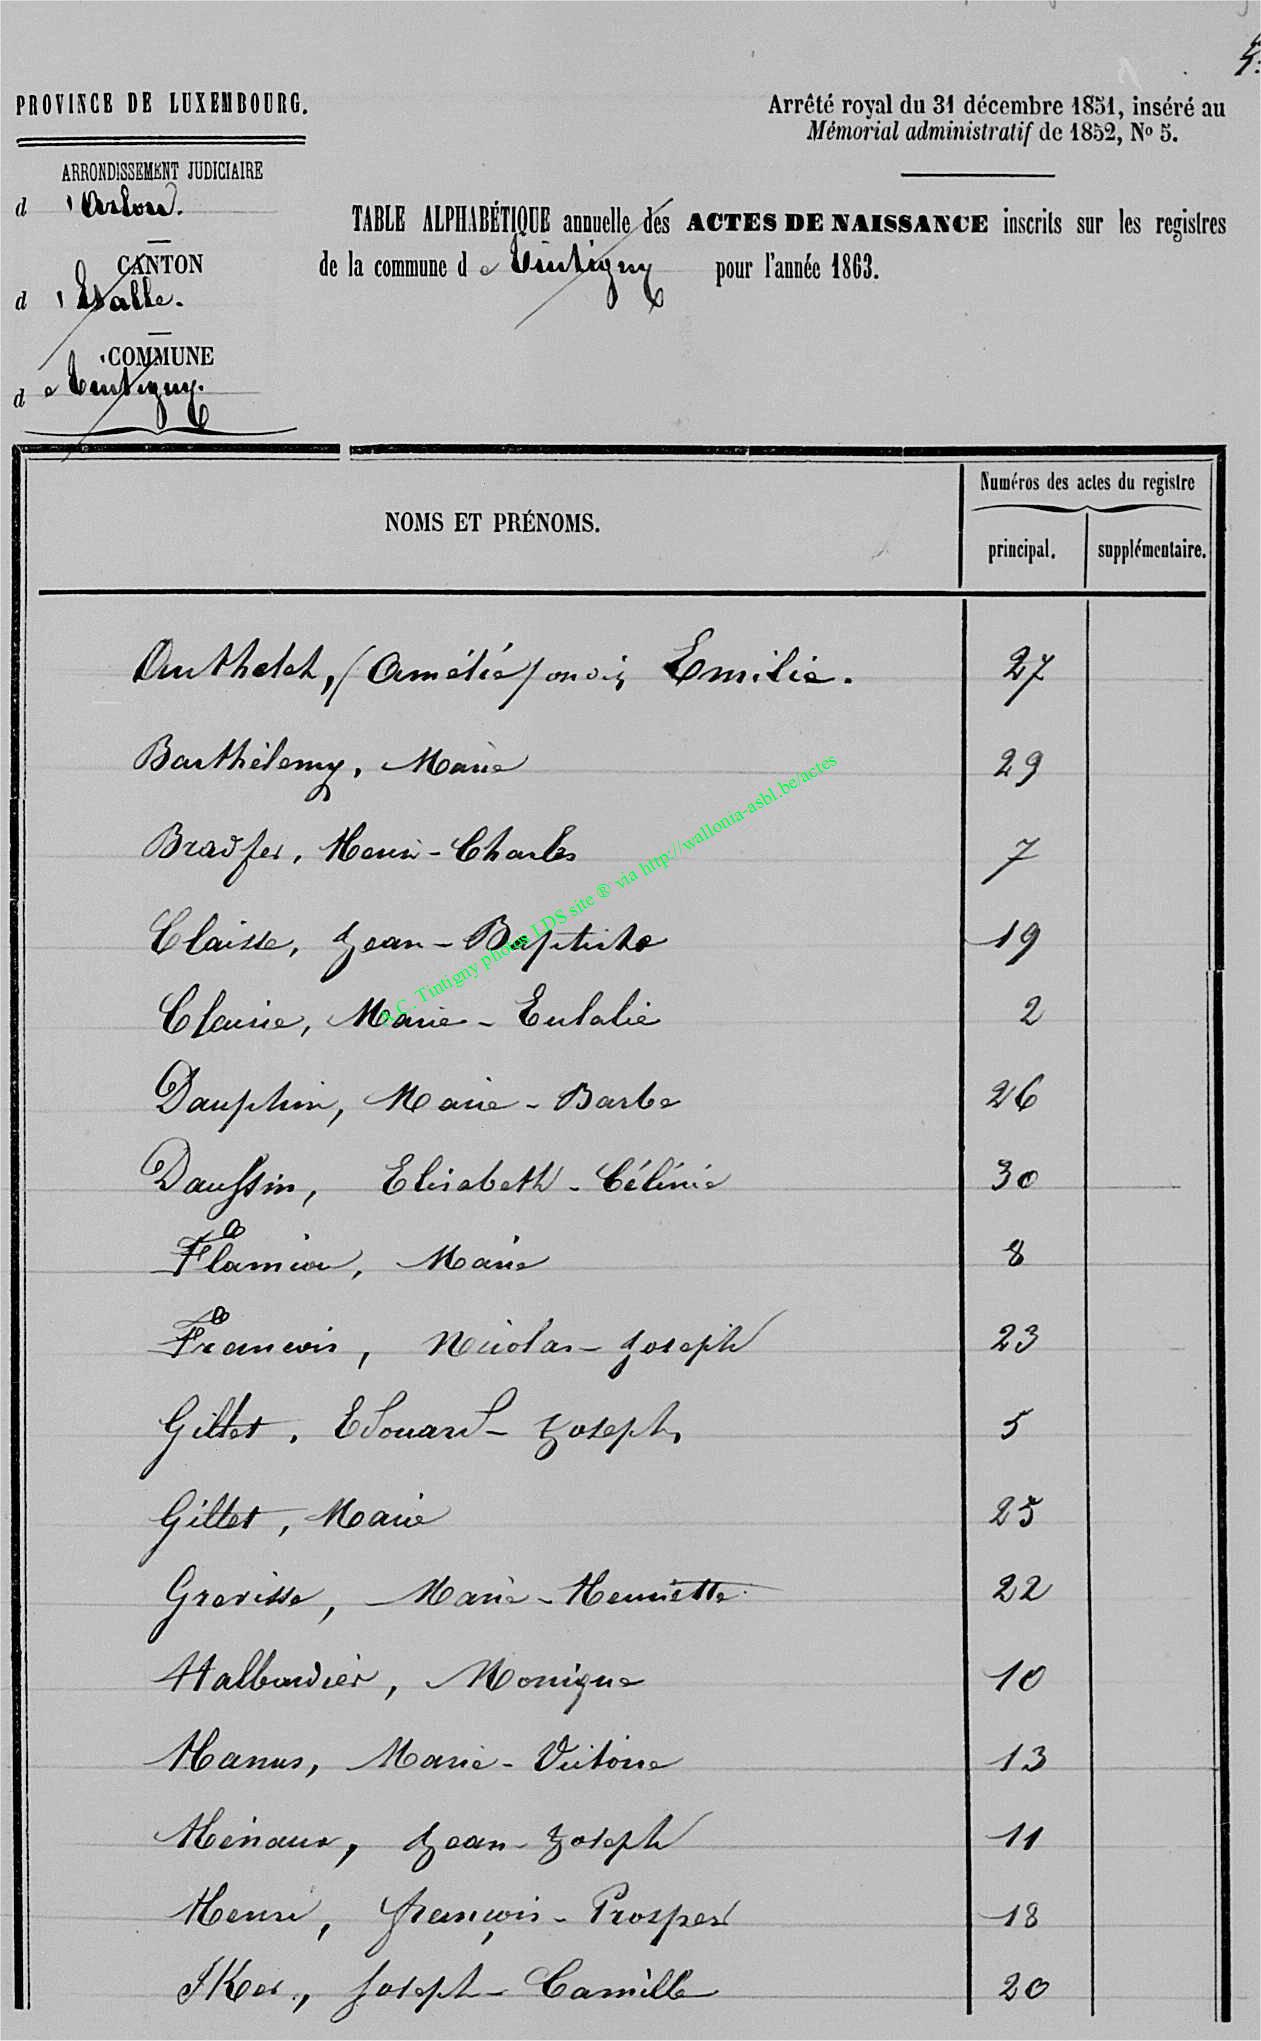 PROVINCE DE LUXEMBOURG.
ARRONDISSEMENT JUDICIAIRE
d'Arlon.
CANTON
d'Etalle.
COMMUNE
de Tintigny.
Arrêté royal du 31 décembre 1851, inséré au
Mémorial administratif de 1852, No 5.
TABLE ALPHABÉTIQUE annuelle des ACTES DE NAISSANCE inscrits sur les registres
de la commune de Tintigny pour l'année 1863.
NOMS ET PRÉNOMS.
Numéros des actes du registre
principal. supplémentaire.
Authelet, (Amélie) Emilie. 27
Barthélemy, Marie 29
Bradfer, Henri-Charles 7
Claisse, Jean-Baptiste 19
Claisse, Marie-Eulalie 2
Dauphin, Marie-Barbe 26
Daussin, Elisabeth-Célinie 30
Flamion, Marie 8
François, Nicolas-Joseph 23
Gillet, Edouard-Joseph 5
Gillet, Marie 25
Grevisse, Marie-Henriette 22
Halbardier, Monique 10
Hanus, Marie-Victoire 13
Henaux, Jean-Joseph 11
Henri, François-Prosper 18
Joseph-Camille 20
A.C. Tintigny photos LDS site ® via http://wallonia-asbl.be/actes